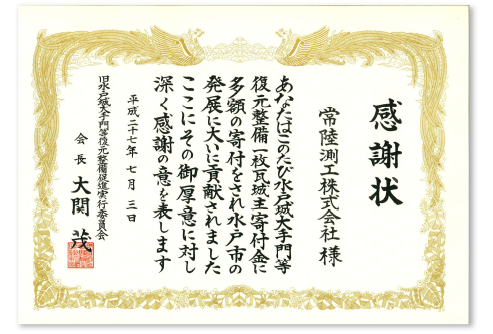 感謝状
常陸測工株式会社 様
あなたはこのたび水戸城大手門等
復元整備一枚瓦城主寄付金に
多額の寄付をされ水戸市の
発展に大いに貢献されました
ここにその御厚意に対し
深く感謝の意を表します
平成二十七年 七月 三日
旧水戸城大手門等復元整備促進実行委員会
会長 大関 茂